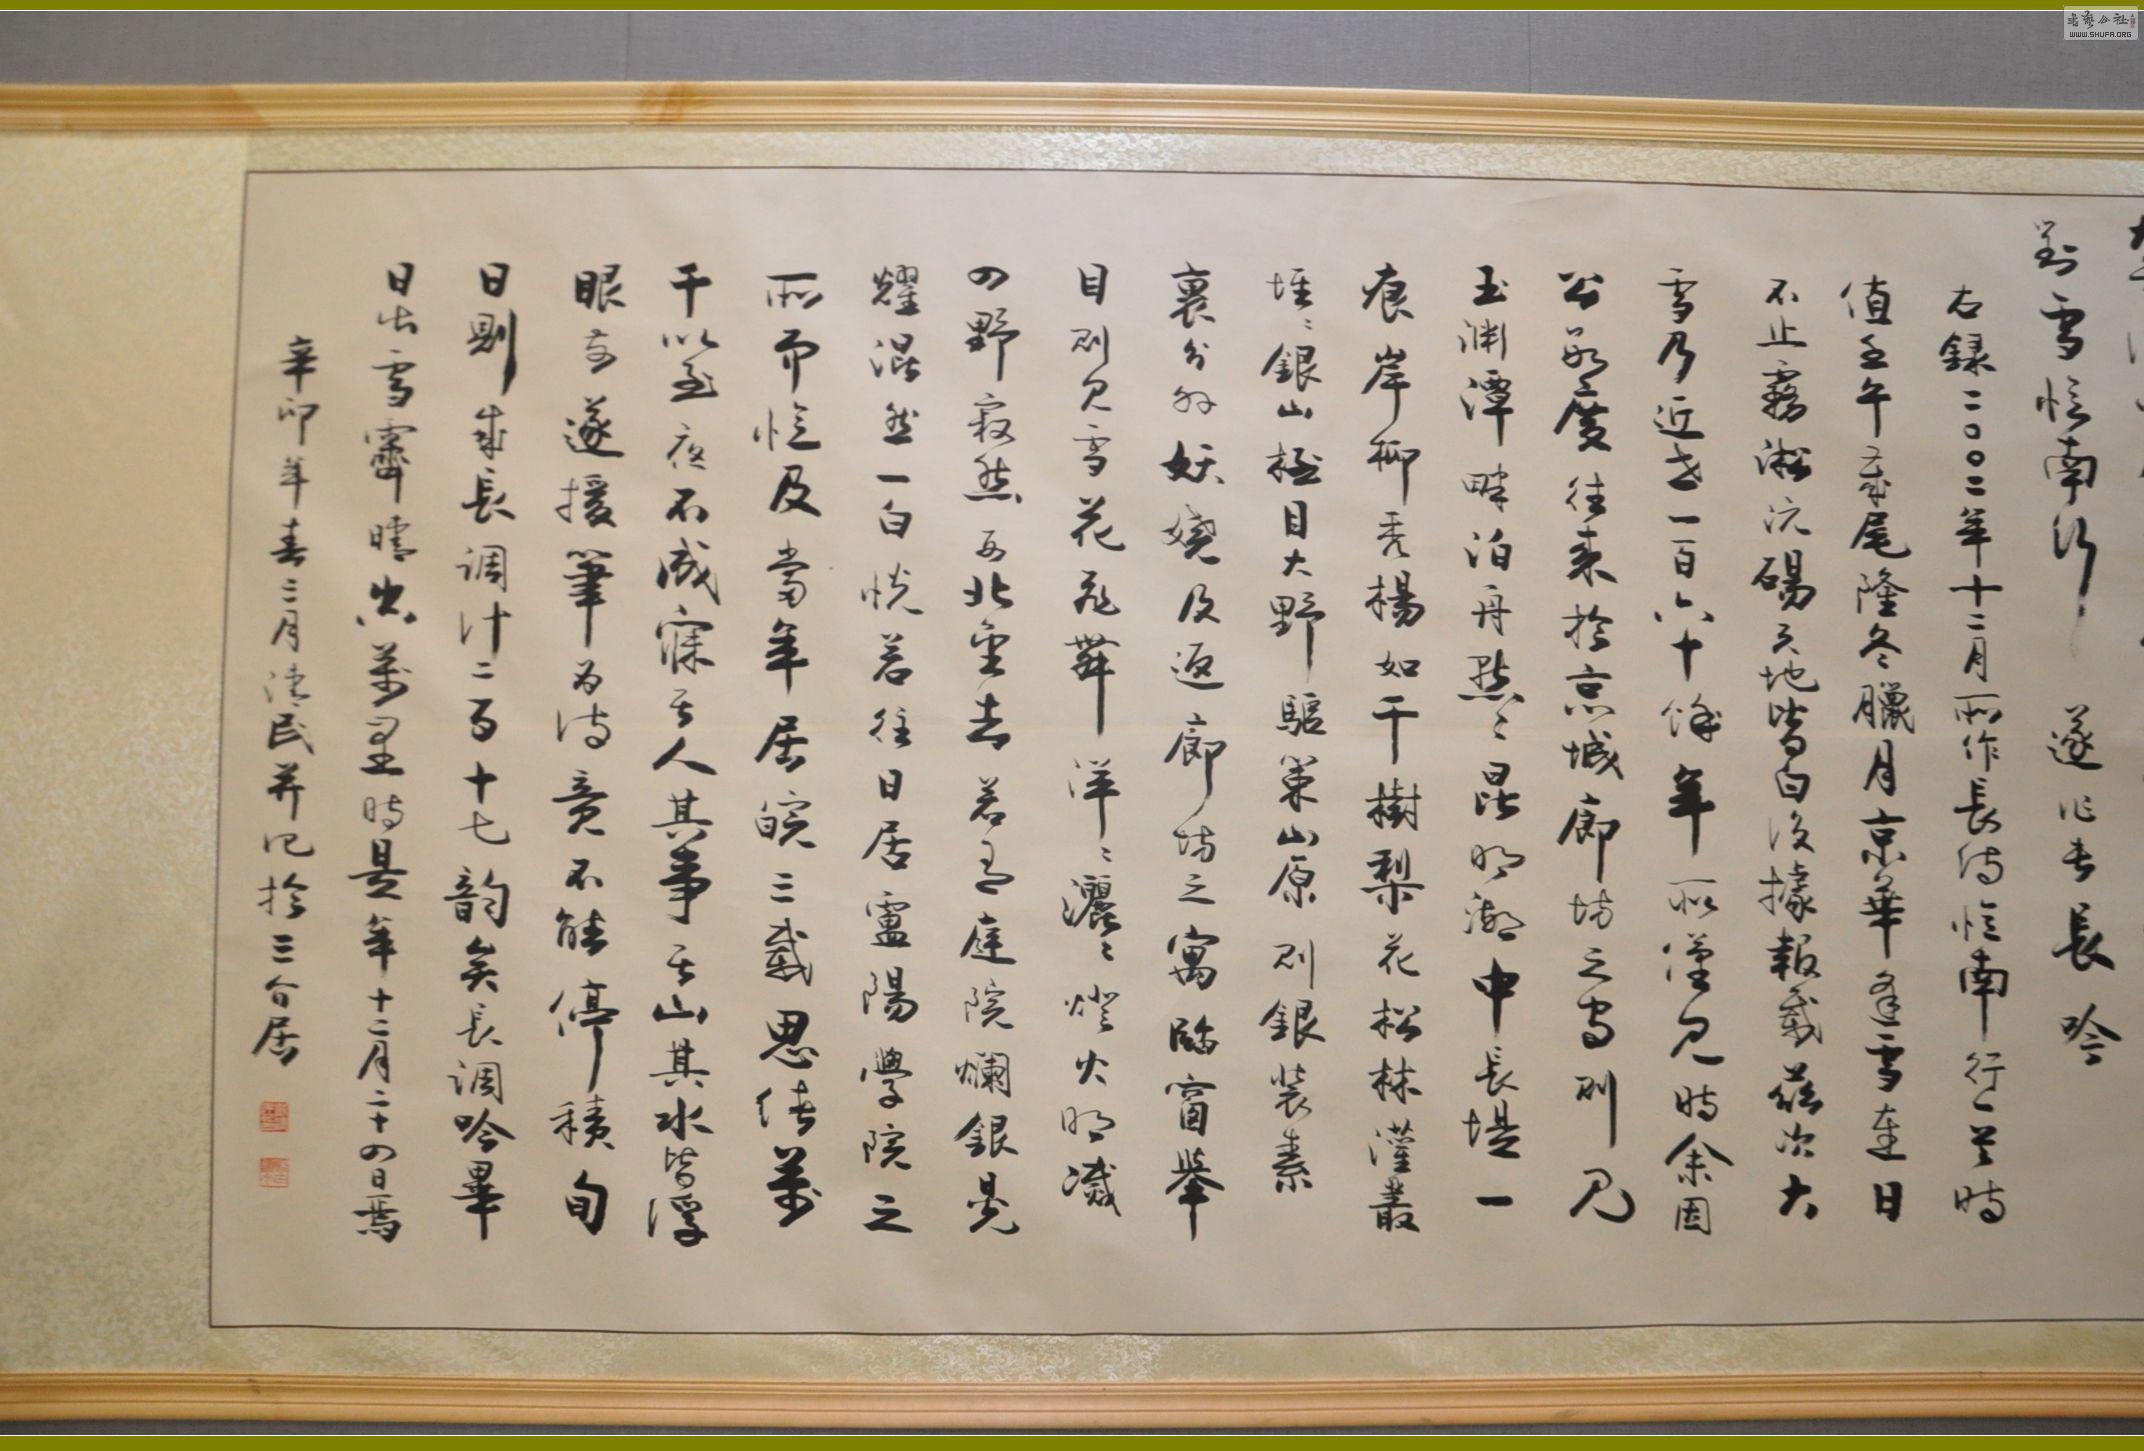 對雪憶南行 遂作長吟
右錄二〇〇二年十二月所作長詩憶南行一首時
值壬午歲尾隆冬臘月京華逢雪連日
不止霧淞沆碭天地皆白後據報載茲次大
雪乃近世一百六十餘年所僅見時余因
公務屢往來於京城廊坊之間則見
玉淵潭畔泊舟點點昆明湖中長堤一
痕岸柳秀楊如千樹梨花松林灌叢
堆堆銀山極目大野驅策山原則銀裝素
裹分外妖嬈及返廊坊之寓臨窗舉
目則見雪花飛舞洋洋灑灑燈火明滅
四野寂然西北望去若有庭院爛銀晃
耀混然一白恍若往日居廬陽學院之
所而憶及當年居皖三載思緒萬
千以至夜不成寐其人其事其山其水皆浮
眼前遂援筆為詩竟不能停積旬
日則成長調計二百十七韵矣長調吟畢
日出雪霽晴光萬里時是年十二月二十四日焉
辛卯年春三月 民并記於三 居
書藝公社
WWW.SHUFA.ORG